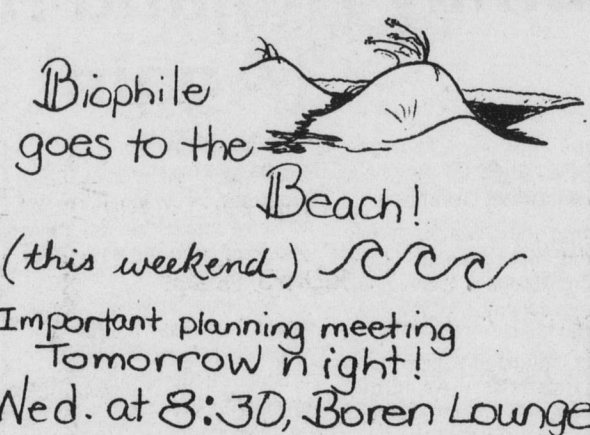 Biophile
goes to the
Beach!
(this weekend)
Important planning meeting
Tomorrow night!
Wed. at 8:30, Boren Lounge